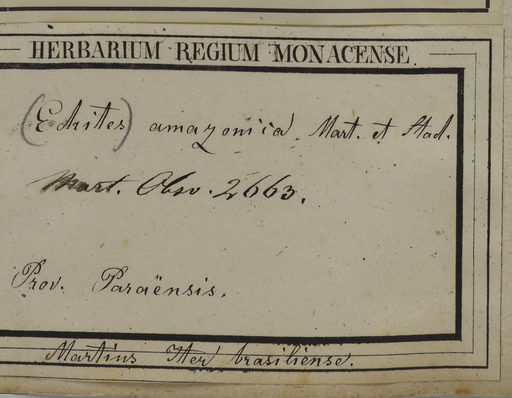 HERBARIUM REGIUM MONACENSE.
(Echites) amazonica. Mart. et Stad.
Mart. Obsv. 2663.
Prov. Paraënsis.
Martius Iter brasiliense.